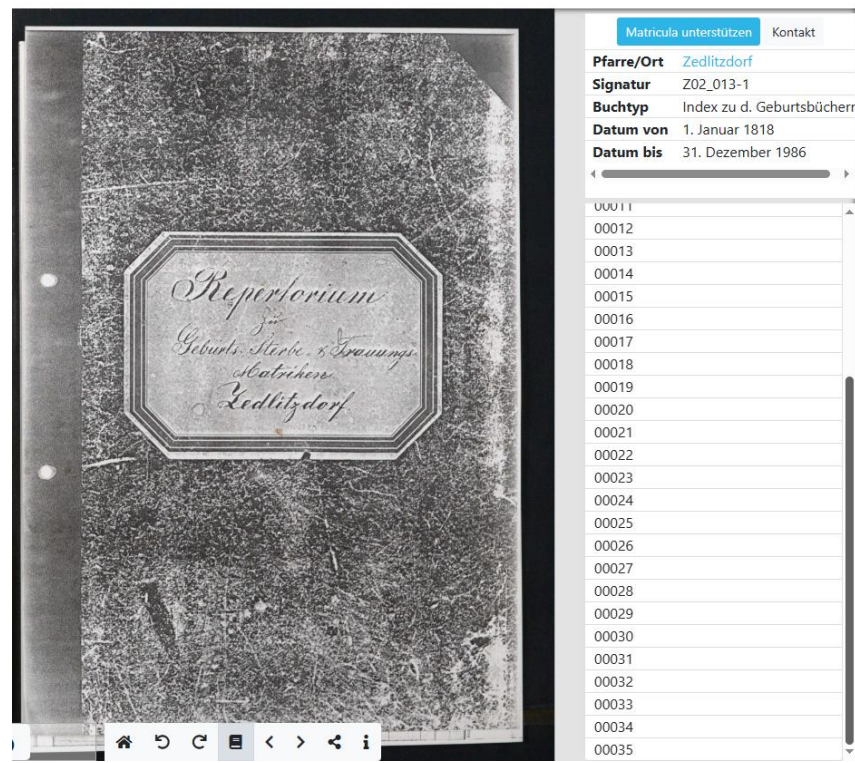 Repertorium
zu
Geburts- Sterbe- & Trauungs-
Matriken
Zedlitzdorf
Matricula unterstützen Kontakt
Pfarre/Ort Zedlitzdorf
Signatur Z02_013-1
Buchtyp Index zu d. Geburtsbüchern
Datum von 1. Januar 1818
Datum bis 31. Dezember 1986
00011
00012
00013
00014
00015
00016
00017
00018
00019
00020
00021
00022
00023
00024
00025
00026
00027
00028
00029
00030
00031
00032
00033
00034
00035